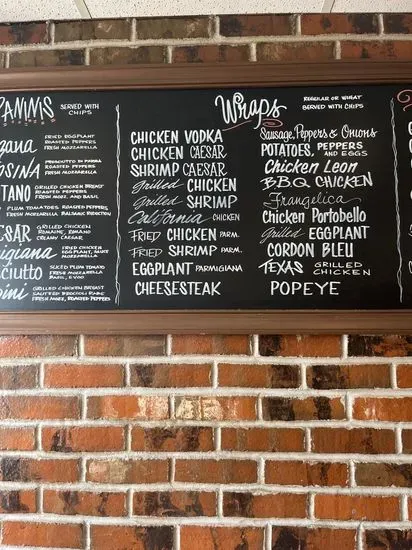 PANINIS SERVED WITH CHIPS
FRIED EGGPLANT
ROASTED PEPPERS
FRESH MOZZARELLA
PROSCIUTTO DI PARMA
ROASTED PEPPERS
FRESH MOZZARELLA
TANO GRILLED CHICKEN BREAST
ROASTED PEPPERS
FRESH MOZZ, AND BASIL
PLUM TOMATOES, ROASTED PEPPERS
FRESH MOZZARELLA, BALSAMIC REDUCTION
GRILLED CHICKEN
ROMAINE, ROMANO
CREAMY CAESAR
FRIED CHICKEN
EGGPLANT, SAUCE
MOZZARELLA
SLICED PLUM TOMATO
FRESH MOZZARELLA
BASIL, EVOO
GRILLED CHICKEN BREAST
SAUTEED BROCCOLI RABE
FRESH MOZZ, ROASTED PEPPERS
Wraps REGULAR OR WHEAT
SERVED WITH CHIPS
CHICKEN VODKA
CHICKEN CAESAR
SHRIMP CAESAR
Grilled CHICKEN
Grilled SHRIMP
California CHICKEN
FRIED CHICKEN PARM.
FRIED SHRIMP PARM.
EGGPLANT PARMIGIANA
CHEESESTEAK
Sausage, Peppers & Onions
POTATOES, PEPPERS
AND EGGS
Chicken Leon
B.B.Q CHICKEN
Frangelica
Chicken Portobello
Grilled EGGPLANT
CORDON BLEU
TEXAS GRILLED
CHICKEN
POPEYE